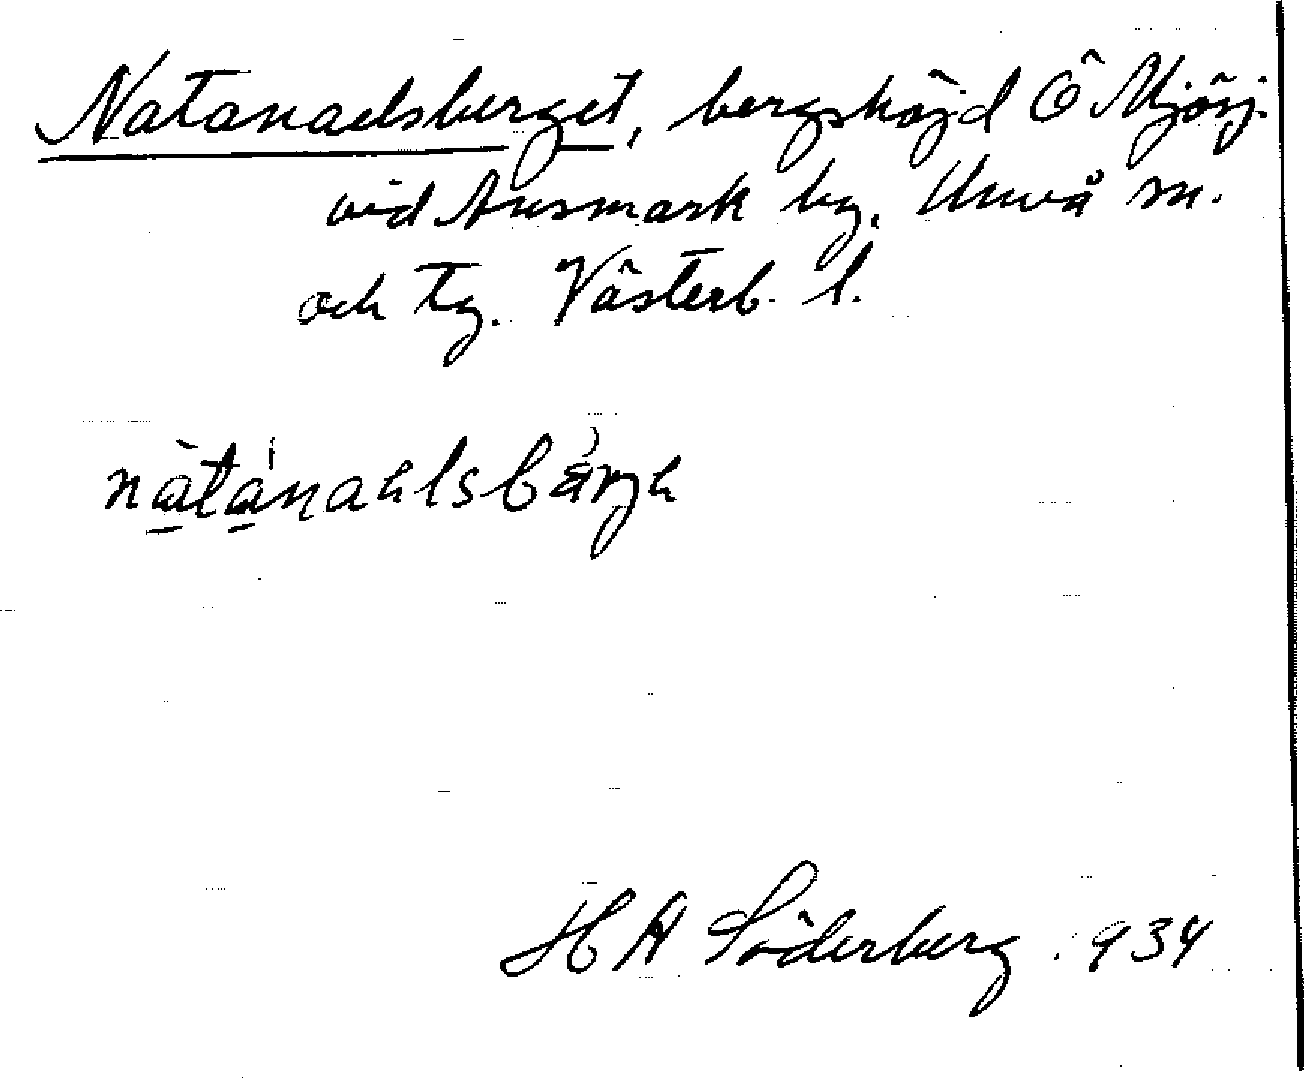 Natanaelsberget, bergshöjd Ö Mjösj.
vid Ansmark by. Umeå sn.
och tg. Västerb. l.
nàtánaelsbärjɛ
H A Söderberg 1934